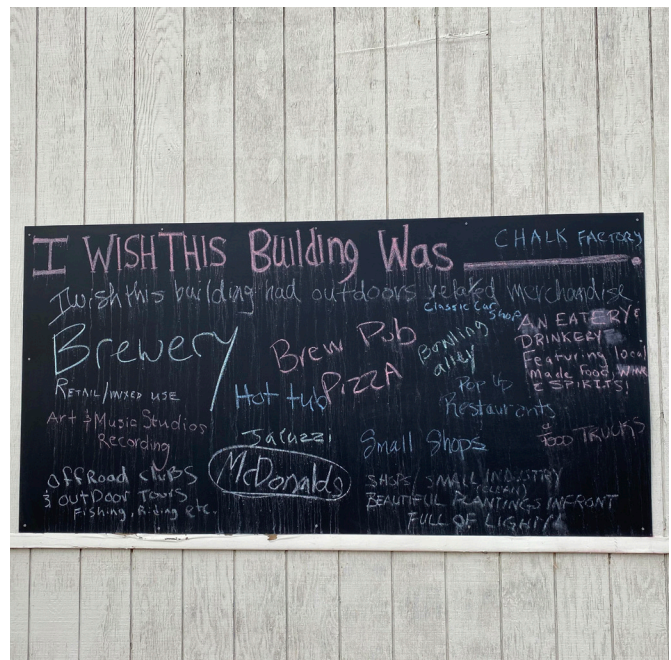 I WISH THIS Building Was
CHALK FACTORY
I wish this building had outdoors related merchandise
Classic Car
Shop
Brewery
Brew Pub
Bowling
alley
AN EATERY &
DRINKERY
Featuring local
Made Food, WINE
& SPIRITS!
RETAIL/MIXED USE
Hot tub
PIZZA
Pop Up
Restaurants
Art & Music Studios
Recording
Jacuzzi
Small Shops
FOOD TRUCKS
McDonalds
OFFROAD CLUBS
& OUTDOOR TOURS
Fishing, Riding etc.
SHOPS, SMALL INDUSTRY
(CLEAN)
BEAUTIFUL PLANTINGS IN FRONT
FULL OF LIGHT!